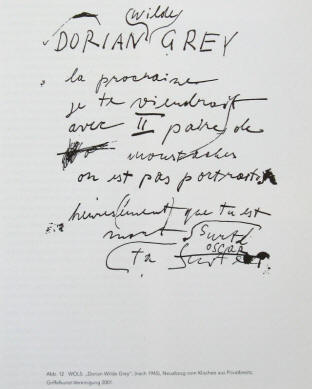 (Wilde)
DORIAN GREY
la prochaine
je te viendrait
avec II paires de
moustaches
on est pas portraits
heures(ement) que tu est
mort
Surtd
OSCAR
ta
Abb. 12 WOLS: „Dorian Wilde Grey“, (nach 1945), Neuabzug vom Klischee aus Privatbesitz,
Griffelkunst-Vereinigung 2001